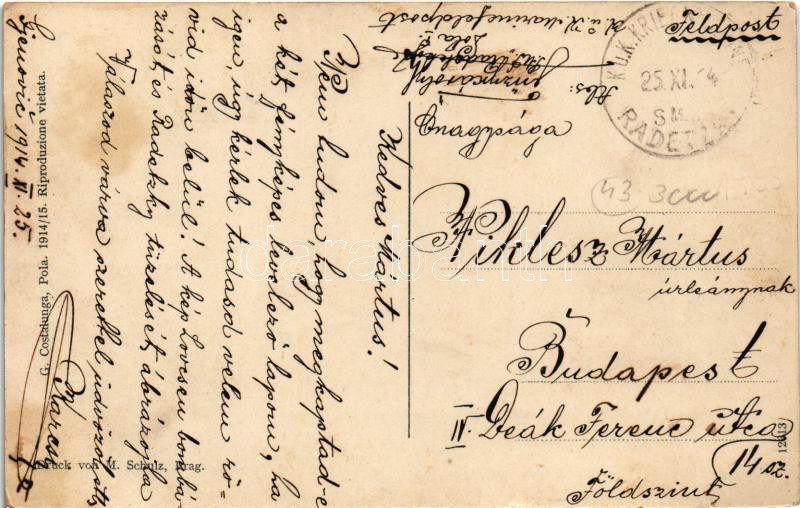 Feldpost
K.U.K. KRIE
25.XI.14
S.M.
RADETZ
Nagyságos
Piklesz Mártus
úrleánynak
Budapest
IV. Deák Ferenc utca
14 sz.
Földszint
Kedves Mártus!
Nem tudom, hogy megkaptad-e
a két fényképes levelező lapom, ha
igen, úgy kérlek tudasd velem rö-
vid időn belül! A kép Lovcsen bombá-
zását, és Radetzky tüzelését ábrázolja
Válaszod várva szeretettel üdvözöl
Karcsi
Gjenović 1914. XI. 25.
G. Costalunga, Pola. 1914/15. Riproduzione vietata.
Druck von M. Schulz, Prag.
darabanth